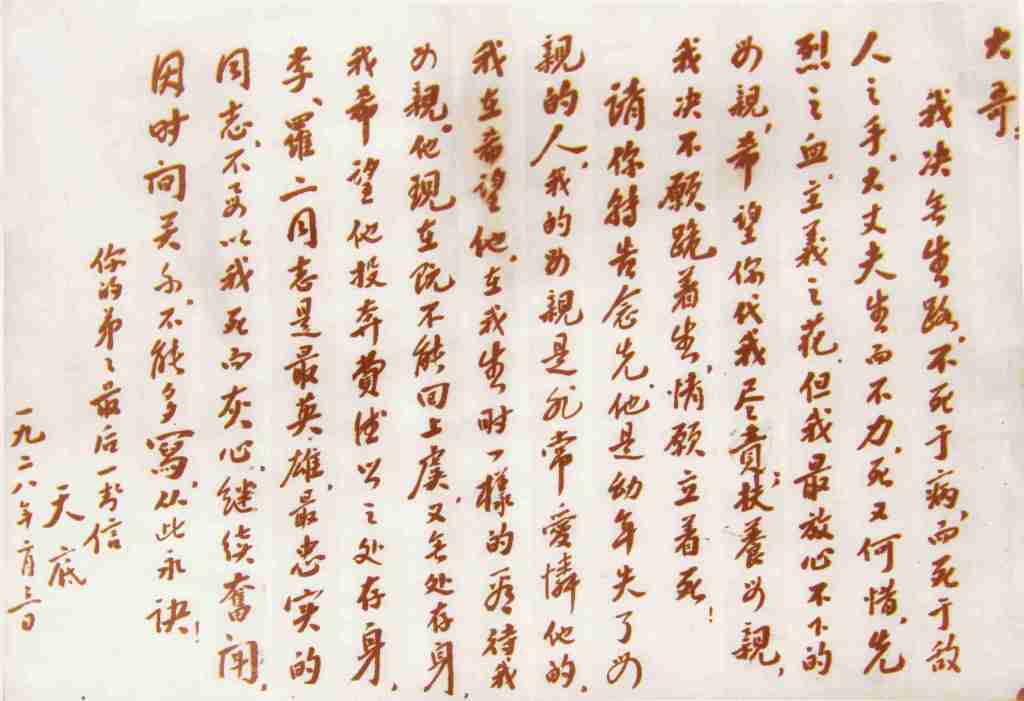 大哥:
我决无生路,不死于病,而死于敌
人之手,大丈夫生而不力,死又何惜,先
烈之血,主義之花,但我最放心不下的
母親,希望你代我尽責;扶養母親,
我决不願跪着生,情願立着死!
请你轉告念先,他是幼年失了母
親的人,我的母親是非常愛憐他的,
我在希望他,在我生时一樣的看待我
母親。他現在既不能回上虞,又无处存身,
我希望他投奔費德之处存身,
李、羅二同志是最英雄,最忠实的
同志,不要以我死而灰心,継续奮闘,
因时间关系,不能多寫,从此永訣!
你的弟々最后一封信
天底
一九二八年二月三日